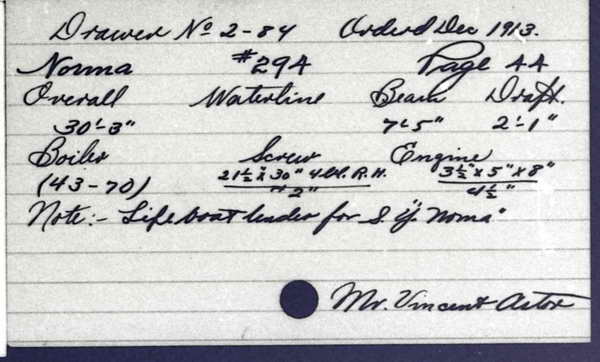 Drawer No 2-84 Ordered Dec 1913.
Norma #294 Page 44
Overall Waterline Beam Draft.
30'-3" 7'-5" 2'-1"
Boiler Screw Engine
(43-70) 21½" x 30" 4 bl. R.H. 3½" x 5" x 8"
#2" 4½"
Note:- Lifeboat tender for S.Y. "Noma"
Mr. Vincent Astor